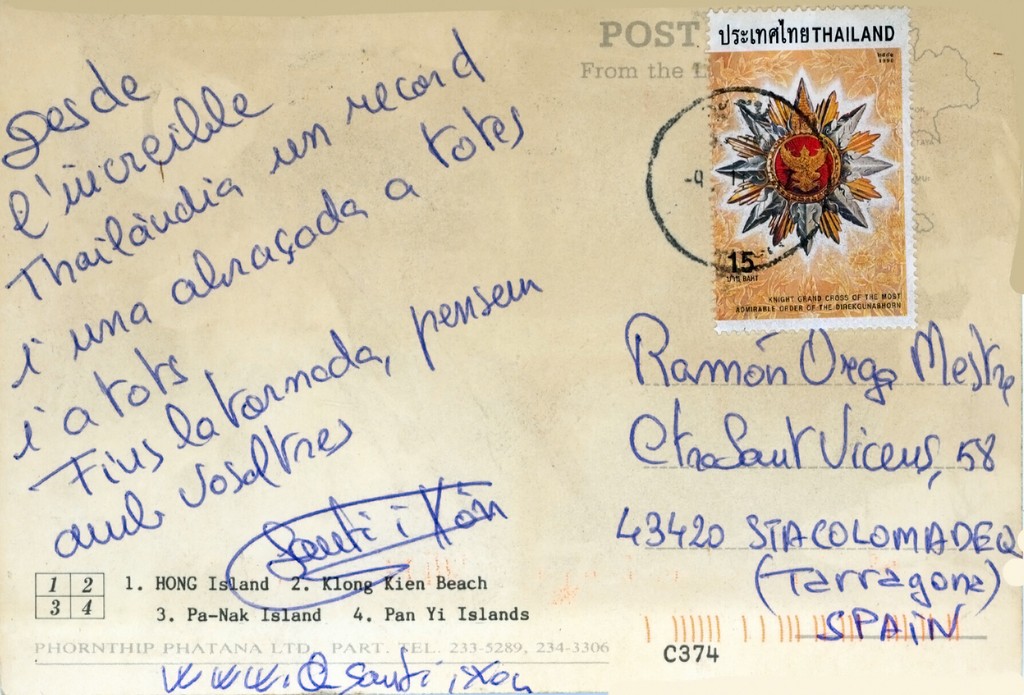 Desde
l'increible
Thailàndia un record
i una abraçada a totes
i a tots,
Fins la tornada, pensem
amb vosaltres
Santi i Xon
1 2
3 4
1. HONG Island 2. Klong Kien Beach
3. Pa-Nak Island 4. Pan Yi Islands
PHORNTHIP PHATANA LTD, PART. TEL. 233-5289, 234-3306
POST
From the
ประเทศไทย THAILAND
15
บาท BAHT
KNIGHT GRAND CROSS OF THE MOST
ADMIRABLE ORDER OF THE DIREKGUNABHORN
Ramón Orega Mestre
Ctra Sant Vicens, 58
43420 STA COLOMA DE Q
(Tarragona)
SPAIN
C374